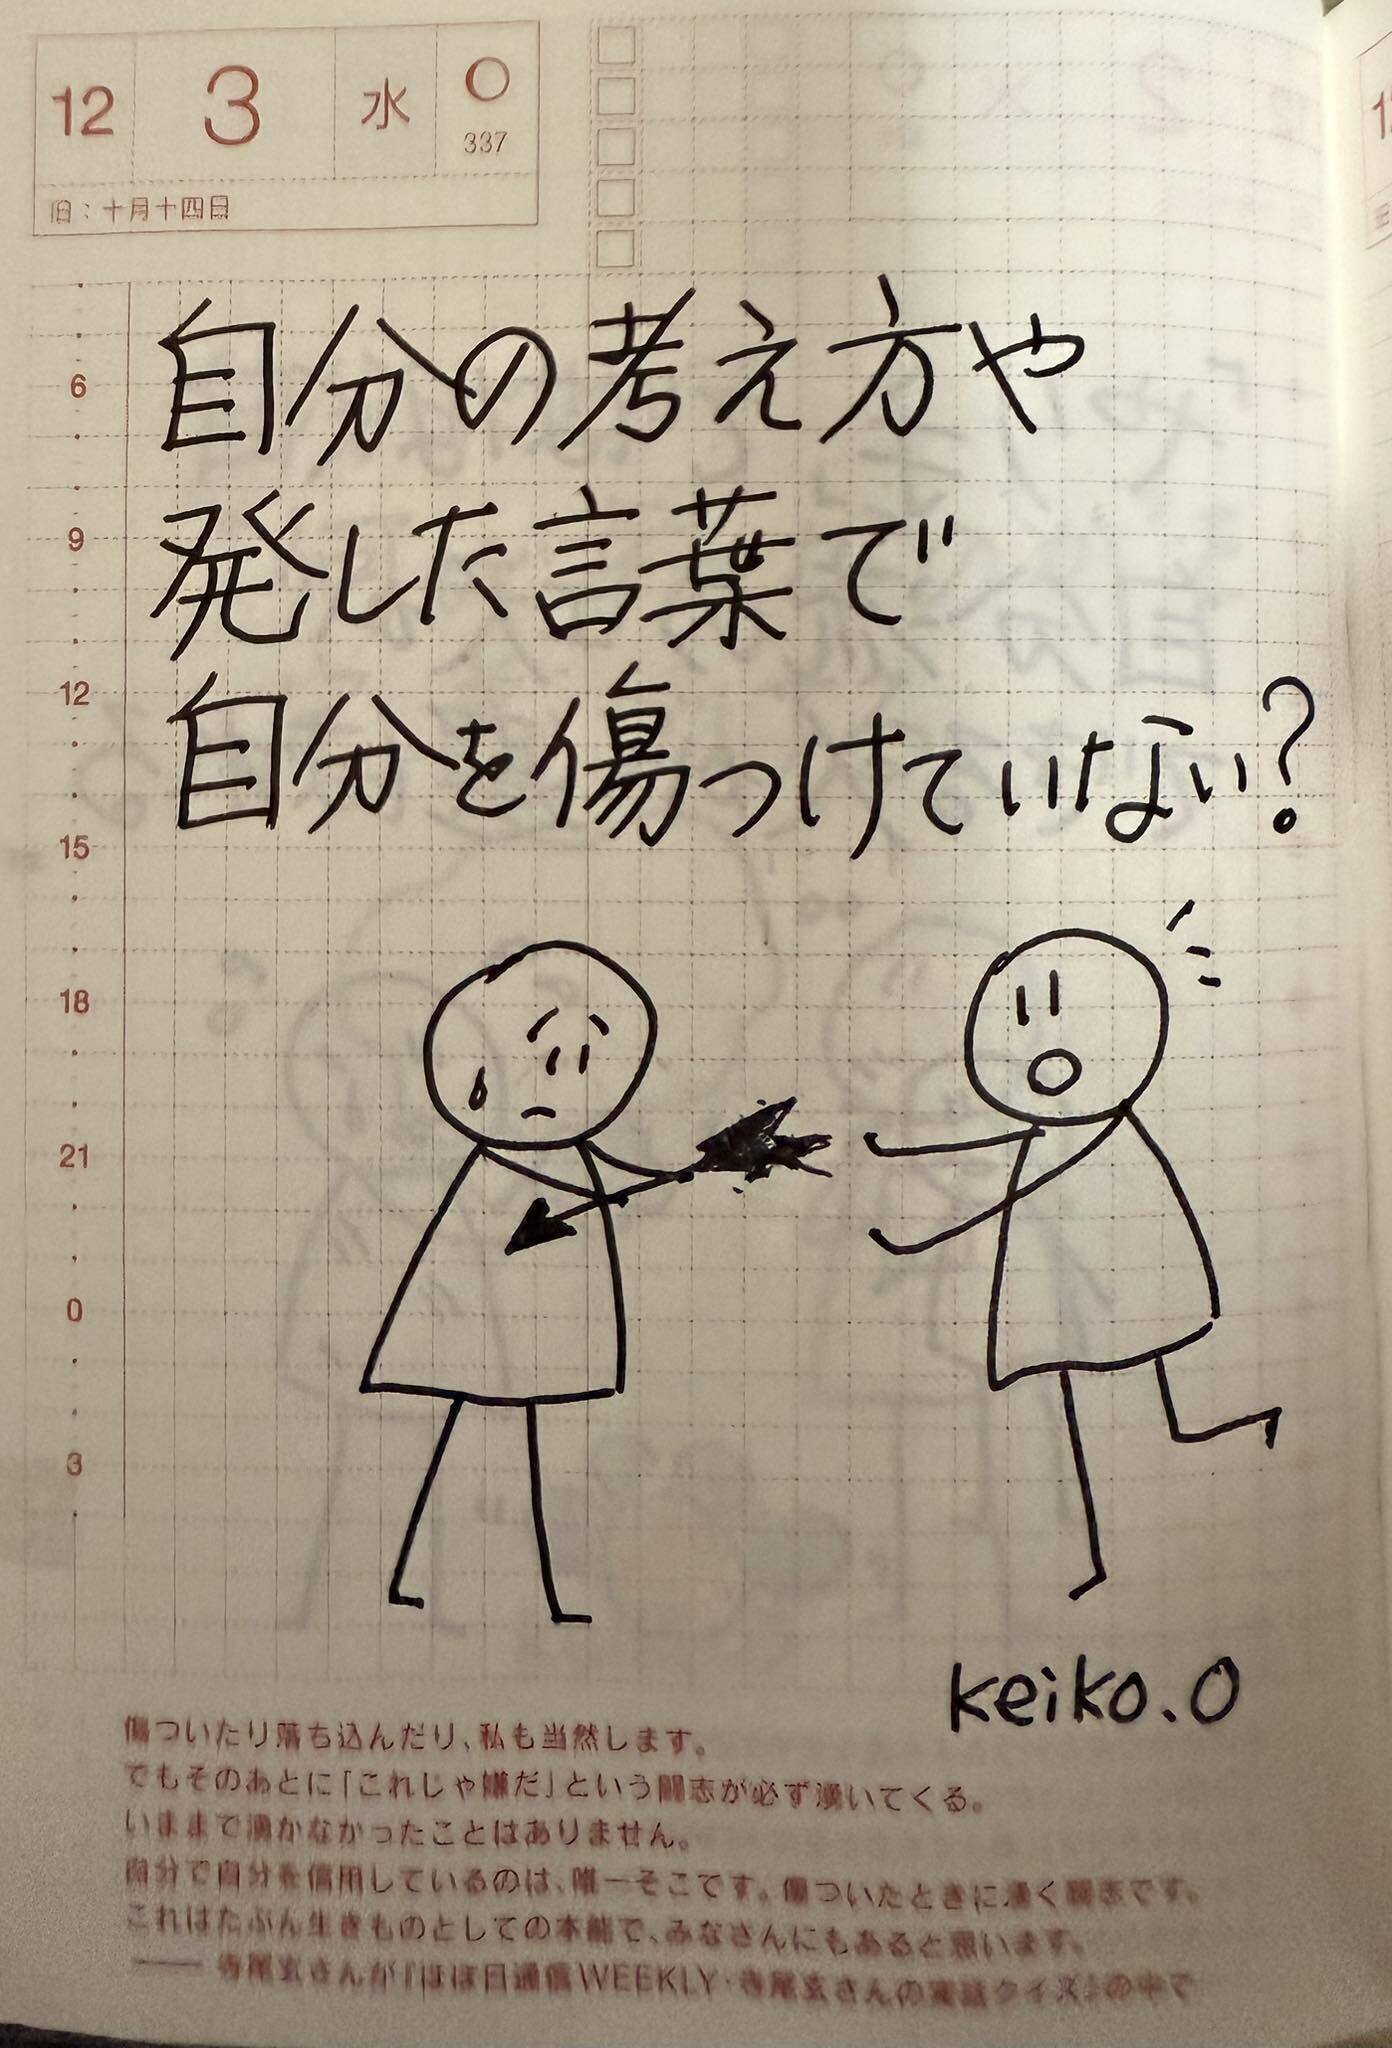 12 3 水 ○
337
旧：十月十四日
自分の考え方や
発した言葉で
自分を傷つけていない?
6
9
12
15
18
21
0
3
keiko.O
傷ついたり落ち込んだり、私も当然します。
でもそのあとに「これじゃ嫌だ」という闘志が必ず湧いてくる。
いままで湧かなかったことはありません。
自分で自分を信用しているのは、唯一そこです。傷ついたときに湧く闘志です。
これはたぶん生きものとしての本能で、みなさんにもあると思います。
―― 寺尾玄さんが『ほぼ日通信WEEKLY・寺尾玄さんの実話クイズ』の中で